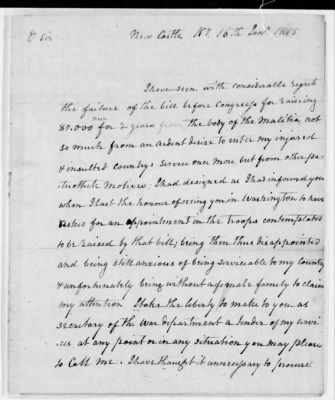 D Sir New Castle Ky. 16th Jany 1815
I have seen with considerable regret
the failure of the bill before Congress for raising
80.000 men for 2 years from the body of the Malitia, not
so much from an ardent desire to enter my injured
& insulted Country's service once more, but from other pa-
triotick motives; I had designed as I had informed you
when I last the honour of seeing you in Washington to have
asked for an appointment in the troops contemplated
to be raised by that bill; being then thus disappointed
and being still anxious of being serviceable to my Country
& unfortunately being without a female family to claim
my attention I take the liberty to make to you as
secretary of the war department a tender of my servi
ces, at any point or in any situation you may please
to Call me. I have thought it unnecessary to procure